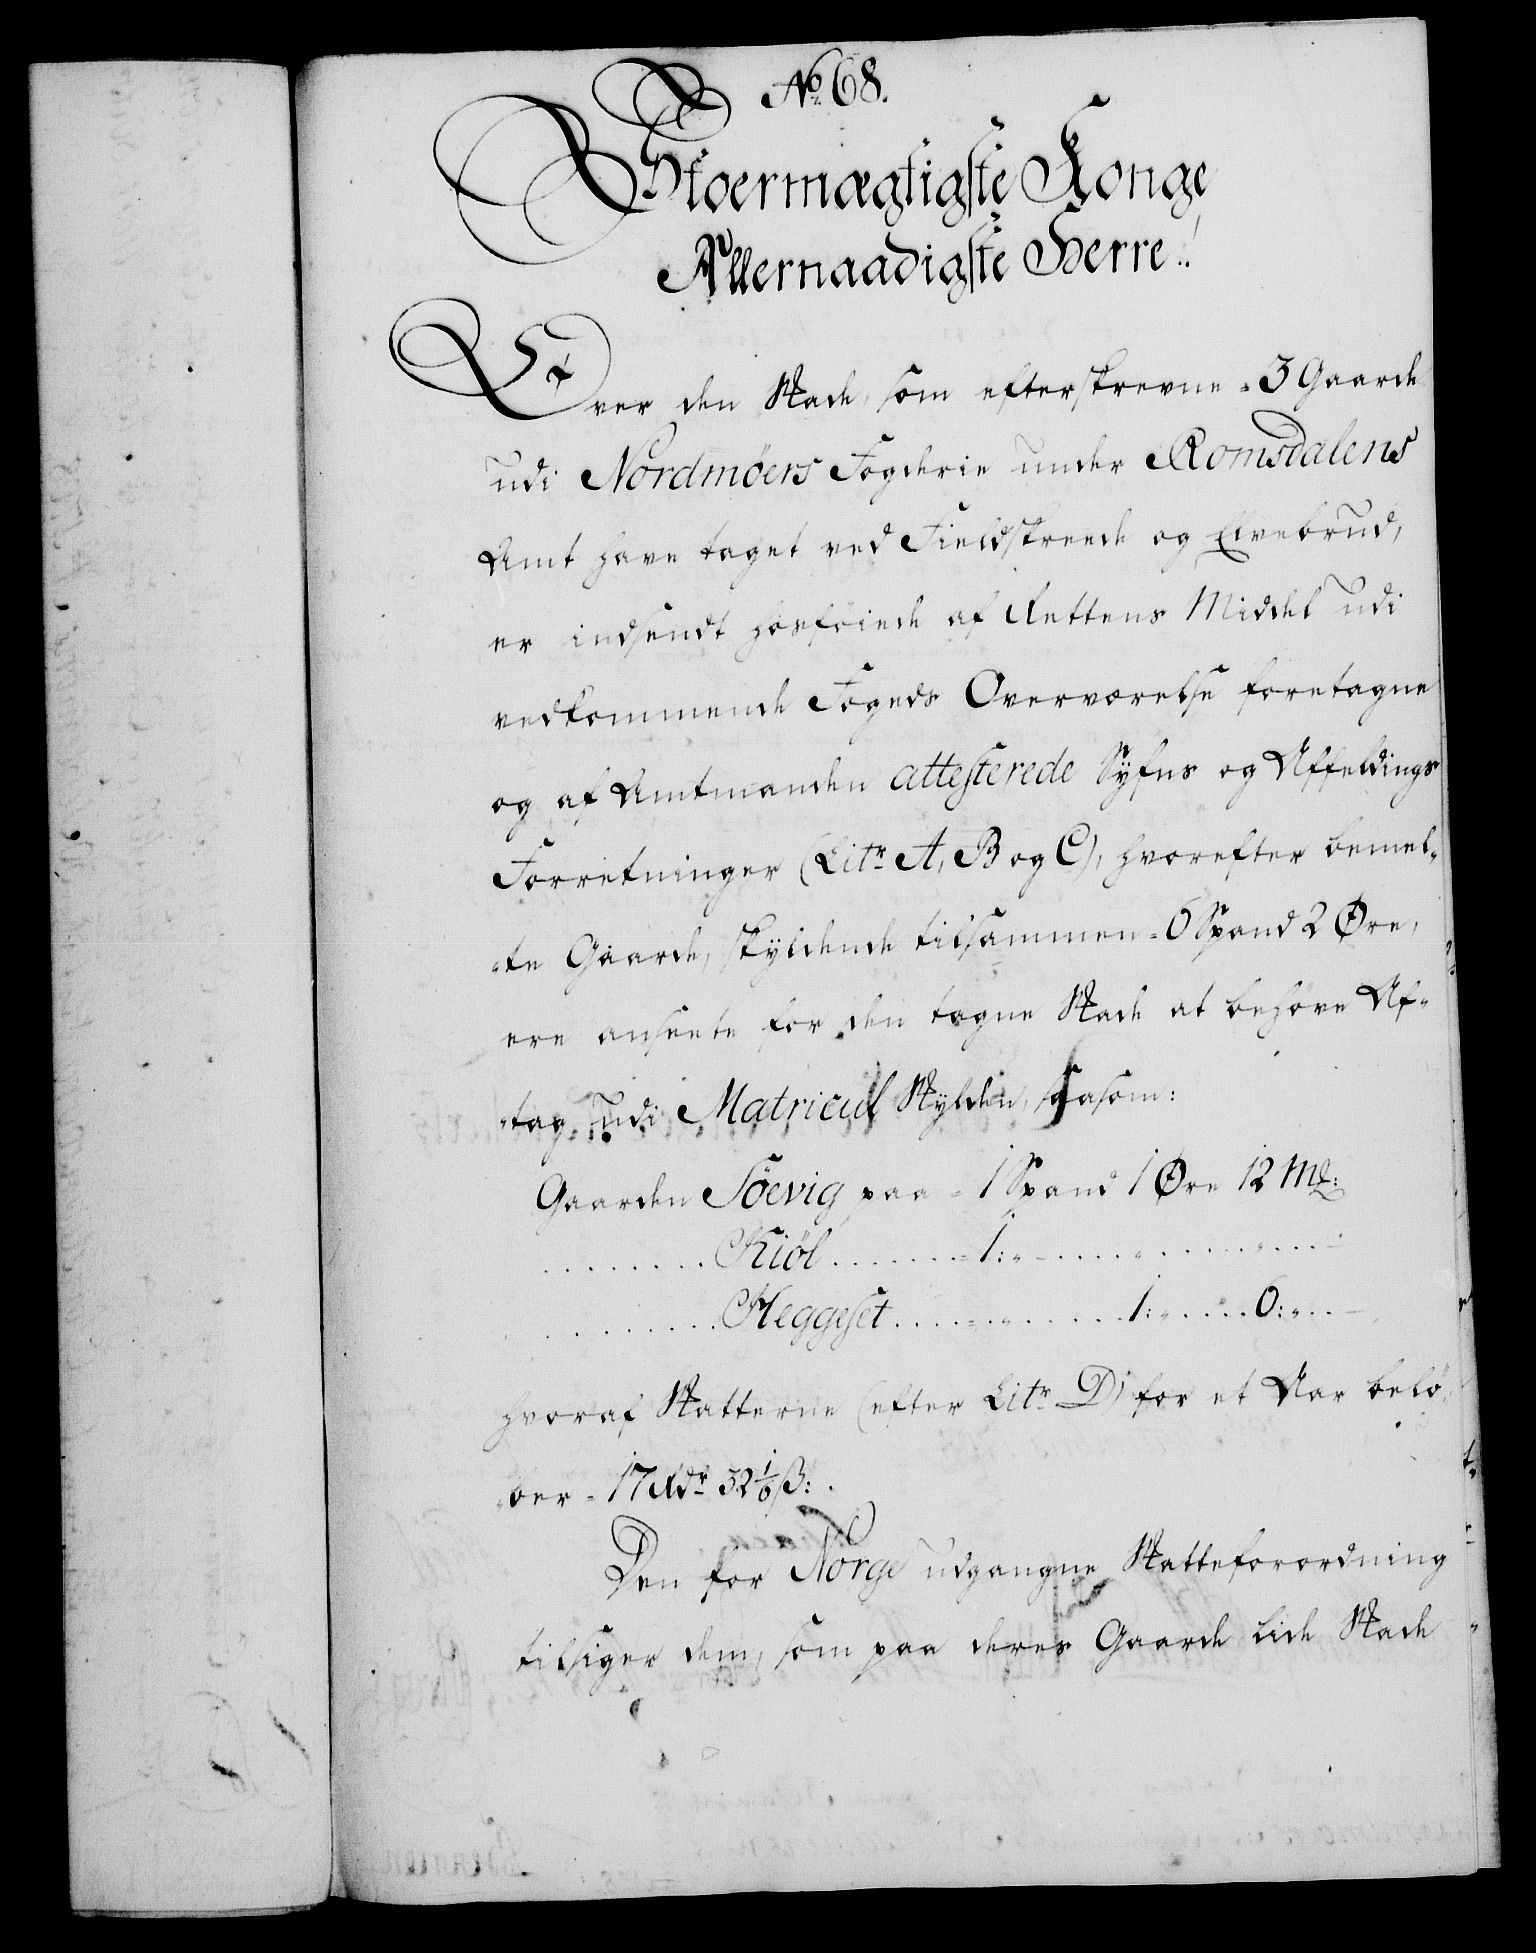 No. 68.
Stoermægtigste Konge
Allernaadigste Herre!
Over den Skade, som efterskrevne 3 Gaarde
udi Nordmøers Fogderie under Romsdalens
Amt have taget ved Fieldskreede og Elvebrud,
er indsendt hosføiede af Rettens Middel udi
vedkommende Fogeds Overværelse foretagne
og af Amtmanden attesterede Syfns og Affeldings
Forretninger (Litr. A, B og C), hvorefter bemel-
-te Gaarde, skyldende tilsammen 6 Spand 2 Øre,
ere ansette for den tagne Skade at behøve Af-
-tag udi Matricul Skylden, saasom:
Gaarden Søevig paa = 1 Spand 1 Øre 12 Mk:
........ Kiøl ....... = 1: " - .... " ...... " ... -
......... Heggeset .... = . " ...... 1: " ..... 6: " .. -
hvoraf Skatterne (efter Litr. D) for et Aar belø-
-ber = 17 Rdr. 32 1/6 ß: .
Den for Norge udgangne Skatteforordning
tilsiger dem, som paa deres Gaarde lide Skade